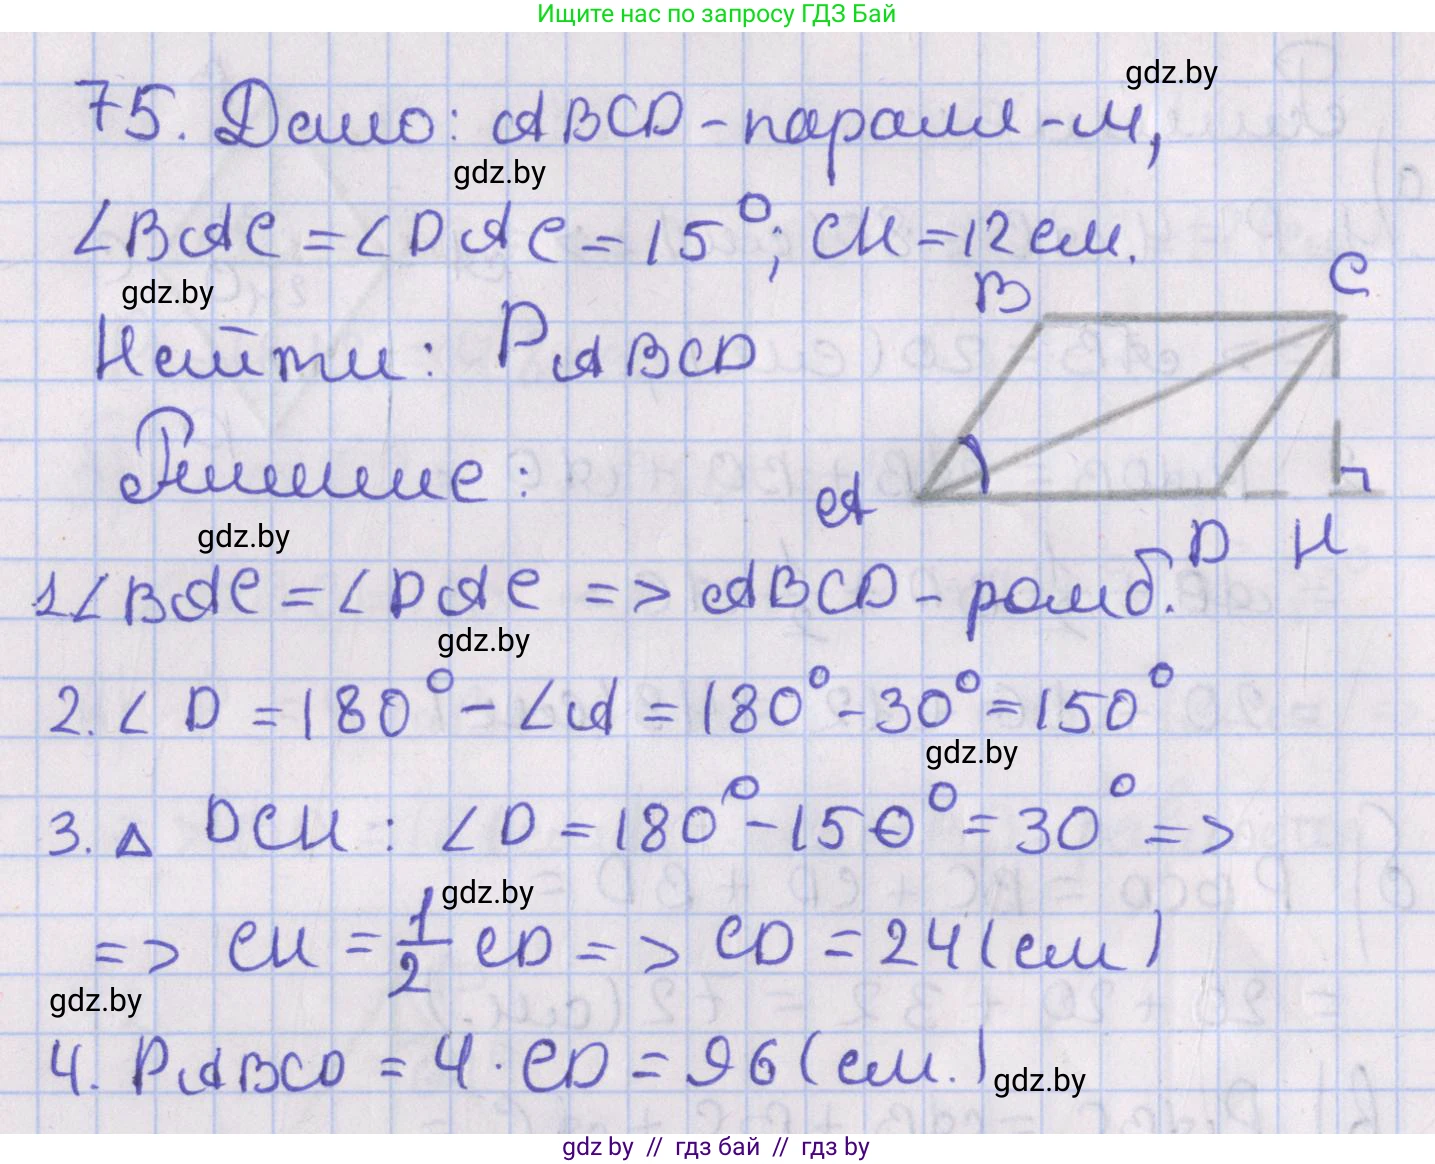 Ищите нас по запросу ГДЗ Бай
gdz.by
75. Дано: ABCD - паралл-м,
gdz.by
∠BAC = ∠DAC = 15°; CH = 12 см.
gdz.by
B C
Найти: P ABCD
Решение:
A D H
gdz.by
1. ∠BAC = ∠DAC => ABCD - ромб.
gdz.by
2. ∠D = 180° - ∠A = 180° - 30° = 150°
gdz.by
3. △ DCH: ∠D = 180° - 150° = 30° =>
gdz.by
=> CH = 1/2 CD => CD = 24 (см)
gdz.by
4. P ABCD = 4 · CD = 96 (см.)
gdz.by
gdz.by // гдз бай // гдз by